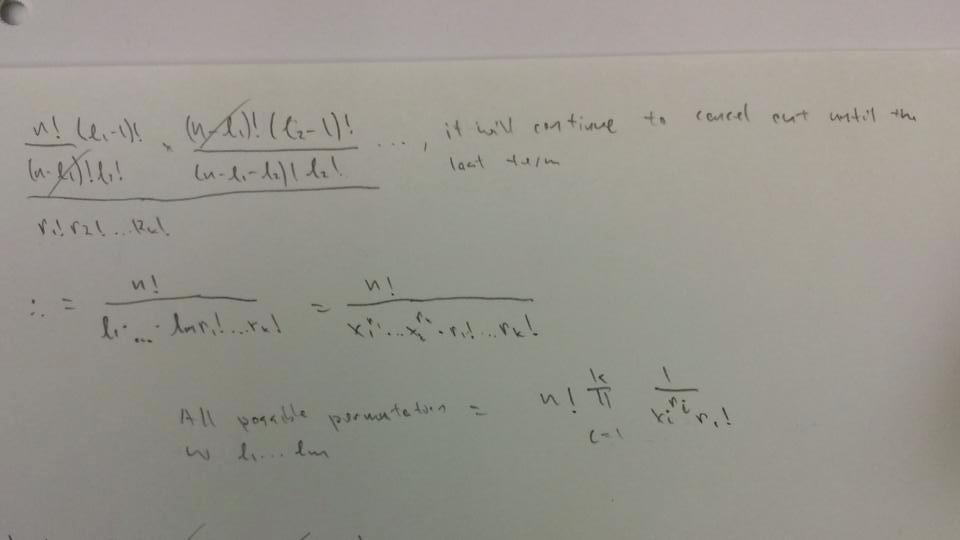 n! (l₁-1)! / (n-l₁)! l₁! × (n-l₁)! (l₂-1)! / (n-l₁-l₂)! l₂! ..., it will continue to cancel out until the
last term
r₁! r₂! ... rₖ!
∴ = n! / l₁· ... · lₘ r₁! ... rₖ! = n! / x₁^r₁ ... x₂^rₖ · r₁! ... rₖ!
All possible permutation = n! k Π i=1 1 / xᵢ^rᵢ rᵢ!
w l₁ ... lₘ